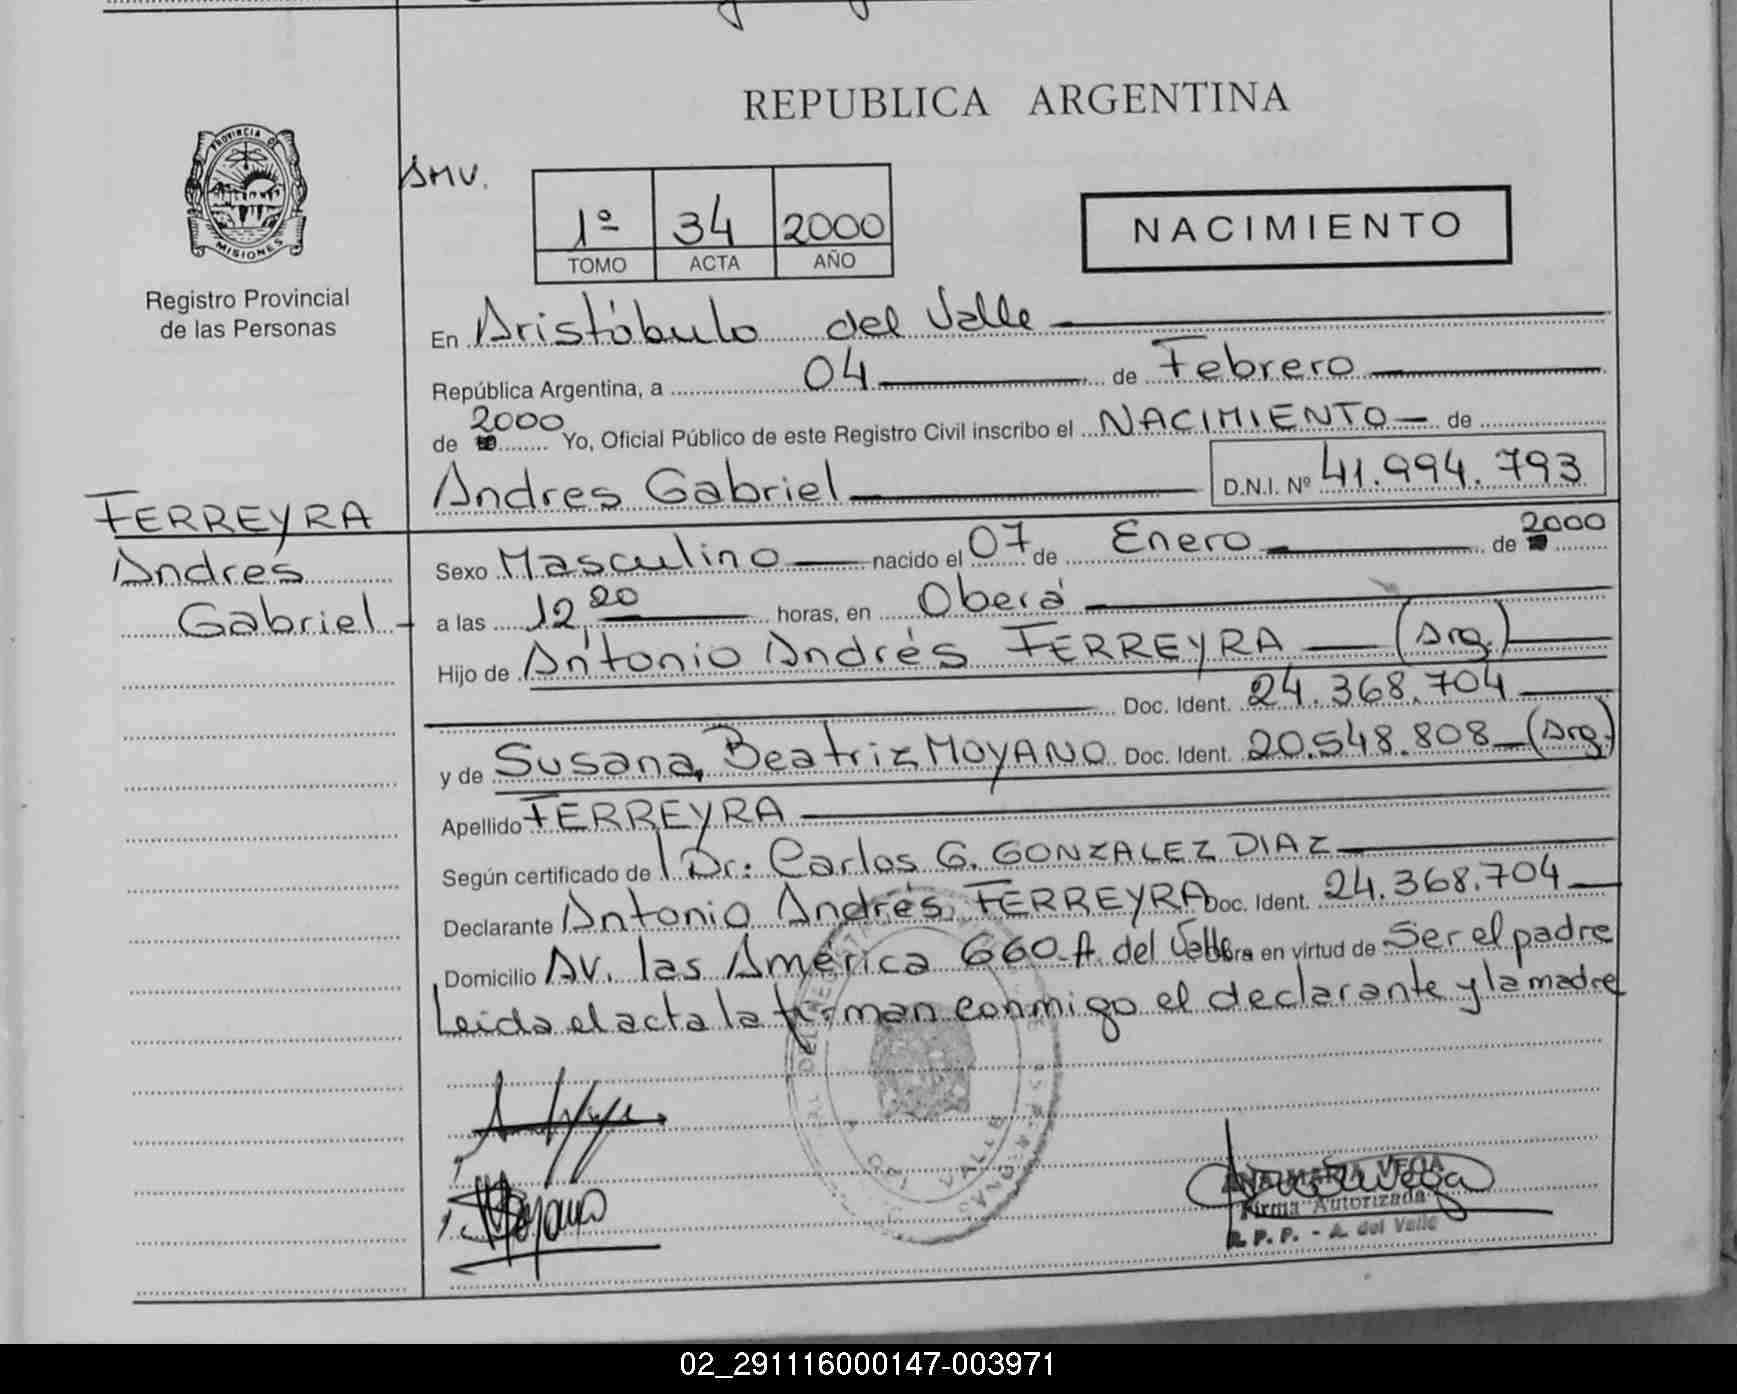 REPUBLICA ARGENTINA
PROVINCIA DE
MISIONES
Registro Provincial
de las Personas
AMV.
1º 34 2000
TOMO ACTA AÑO
NACIMIENTO
En Aristóbulo del Valle
República Argentina, a 04 de Febrero
de 2000 Yo, Oficial Público de este Registro Civil inscribo el NACIMIENTO de
Andres Gabriel D.N.I. Nº 41.994.793
FERREYRA
Andres
Gabriel
Sexo Masculino nacido el 07 de Enero de 2000
a las 12,20 horas, en Oberá
Hijo de Antonio Andrés FERREYRA (Arg.)
Doc. Ident. 24.368.704
y de Susana Beatriz MOYANO Doc. Ident. 20.548.808 (Arg.)
Apellido FERREYRA
Según certificado de Dr. Carlos G. GONZALEZ DIAZ
Declarante Antonio Andrés FERREYRA Doc. Ident. 24.368.704
Domicilio AV. las América 660-A. del Valle en virtud de Ser el padre
Leida el acta la firman conmigo el declarante y la madre
VALLE
Moyano
ANA MARIA VEGA
Firma Autorizada
R. P. P. - A. del Valle
02_291116000147-003971